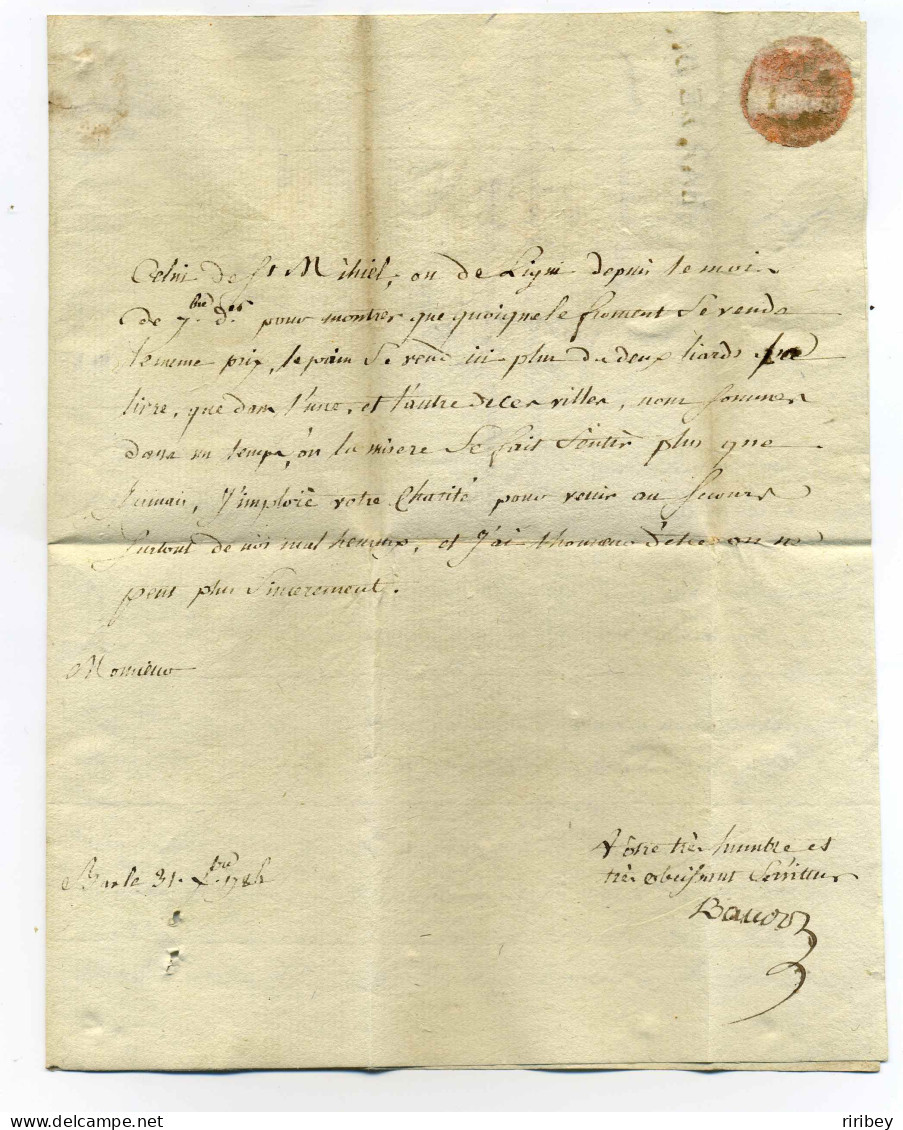 Celui de St Mihiel, ou de Ligni depuis le moi
de 7.bre d.er pour montrer que quoique le froment Se vend
le meme prix, le pain Se vend ici plus de deux liards par
livre, que dans l'une, et l'autre de ces villes, nous sommes
dans un temps, où la misere Se fait Sentir plus que
jamais, J'implore votre Charité pour venir au Secours
Surtout de nos malheureux, et J'ai l'honneur d'etre on ne
peut plus Sincerement.
Monsieur
Bar le 31. Xbre 1784
Vôtre très humble et
très obeissant Serviteur
ririBey